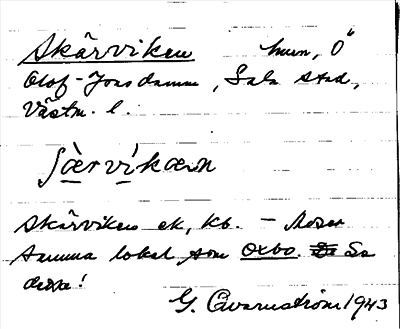 Skärviken hmn, Ö
Olof-Jons damm, Sala stad,
Västm. l.
ʃæ̀rvíkæn
Skärviken ek, kb. – Moser
samma lokal som Oxbo. Se
detta!
G. Cvarnström 1943